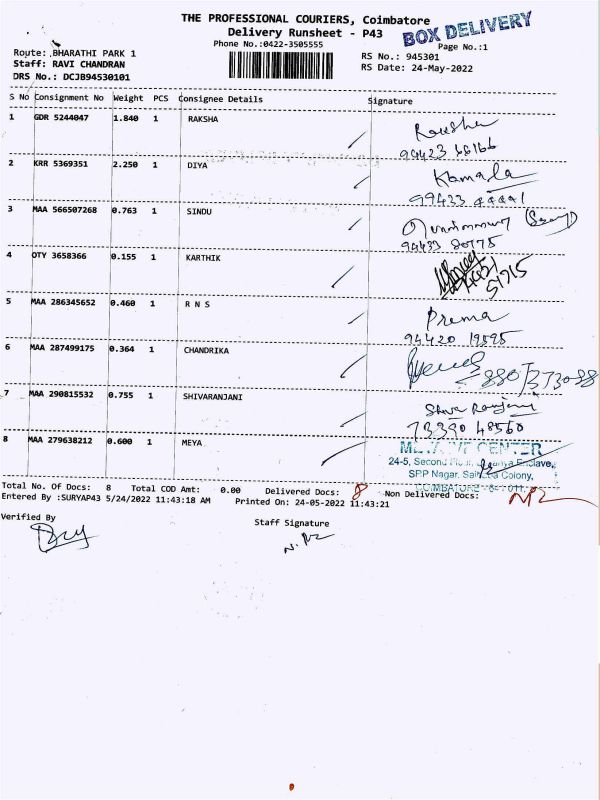 THE PROFESSIONAL COURIERS, Coimbatore
Delivery Runsheet - P43
BOX DELIVERY
Phone No.:0422-3505555
Page No.:1
Route: BHARATHI PARK 1
Staff: RAVI CHANDRAN
DRS No.: DCJB94530101
RS No.: 945301
RS Date: 24-May-2022
S No Consignment No Weight PCS Consignee Details Signature
1 GDR 5244047 1.840 1 RAKSHA Raksha
99423 66166
2 KRR 5369351 2.250 1 DIYA Kamala
99433
3 MAA 566507268 0.763 1 SINDU
94433 80775
4 OTY 3658366 0.155 1 KARTHIK
51715
5 MAA 286345652 0.460 1 R N S Prema
94420 19595
6 MAA 287499175 0.364 1 CHANDRIKA
7 MAA 290815532 0.755 1 SHIVARANJANI Shiva Ranjani
73390 48560
8 MAA 279638212 0.600 1 MEYA
IVF CENTER
24-5, Second Enclave,
SPP Nagar, Colony,
COIMBATORE - 641 011.
Total No. Of Docs: 8 Total COD Amt: 0.00 Delivered Docs: 8 Non Delivered Docs:
Entered By :SURYAP43 5/24/2022 11:43:18 AM Printed On: 24-05-2022 11:43:21
Verified By
Staff Signature